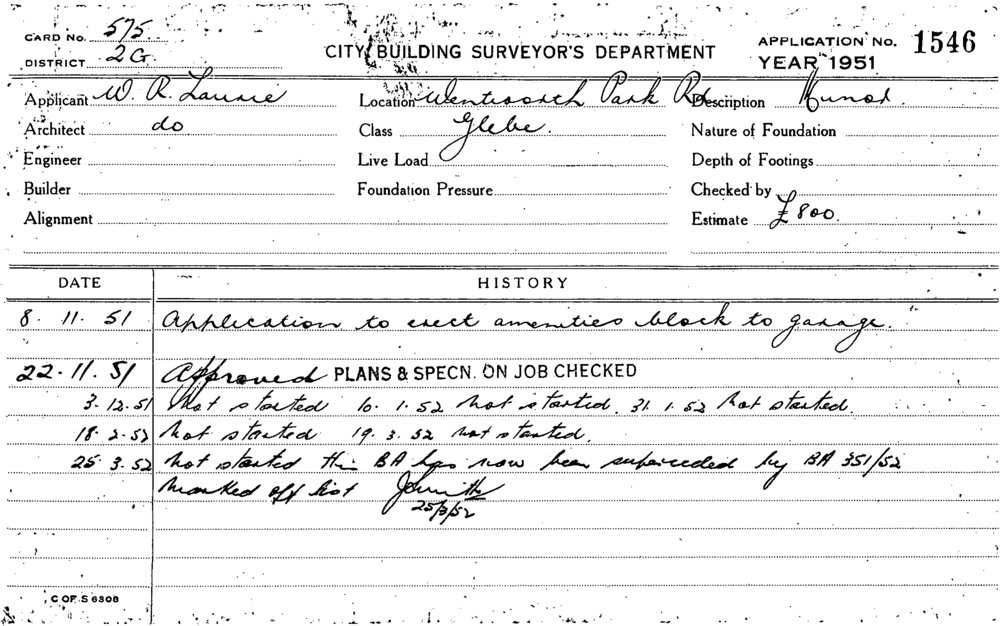 CARD No. 575
DISTRICT 2G
CITY BUILDING SURVEYOR'S DEPARTMENT
APPLICATION No. 1546
YEAR 1951
Applicant W. R. Laurie Location Wentworth Park Rd Description
Architect do Class Glebe. Nature of Foundation
Engineer Live Load Depth of Footings
Builder Foundation Pressure Checked by
Alignment Estimate £800.
DATE HISTORY
8. 11. 51 Application to erect amenities block to garage.
22.11.51 Approved PLANS & SPECN. ON JOB CHECKED
3.12.51 Not started 10.1.52 Not started. 31.1.52 Not started.
18.2.52 Not started 19.3.52 Not started.
25.3.52 Not started this BA has now been superceded by BA 351/52
Marked off list
25/3/52
C OF S 6308